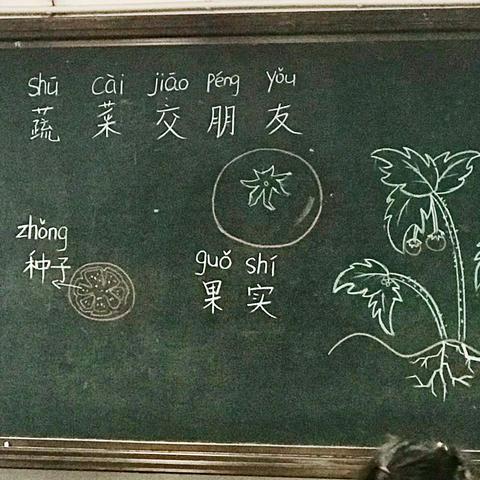 shū cài jiāo péng yǒu
蔬菜交朋友
zhǒng
种子
guǒ shí
果实